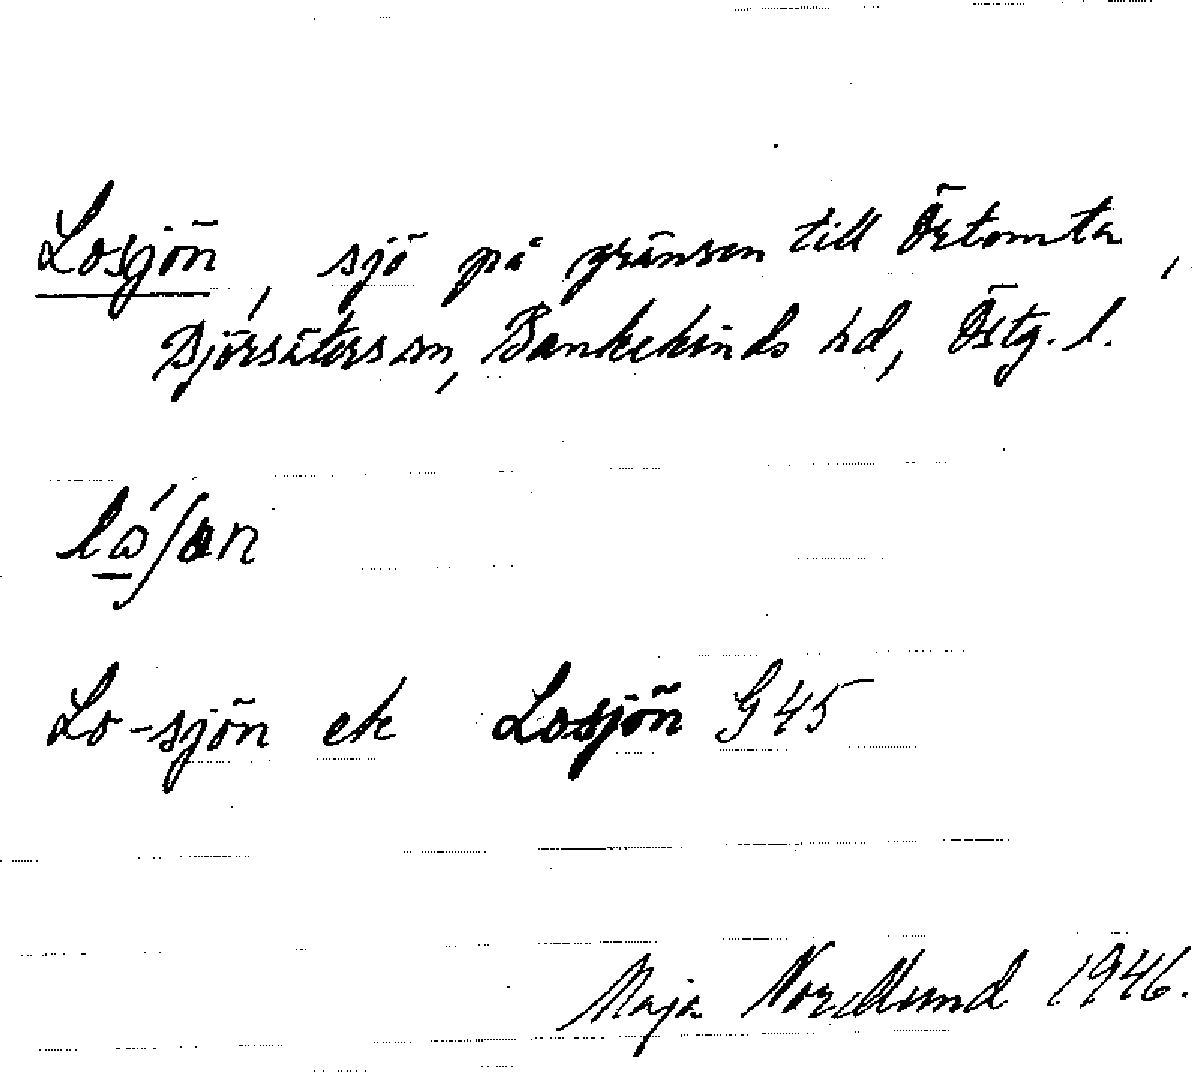 Losjön, sjö på gränsen till Örtomta,
Björsäters sn, Bankekinds hd, Östg. l.
Lo-sjön ek Losjön G45
Maja Nordlund 1946.